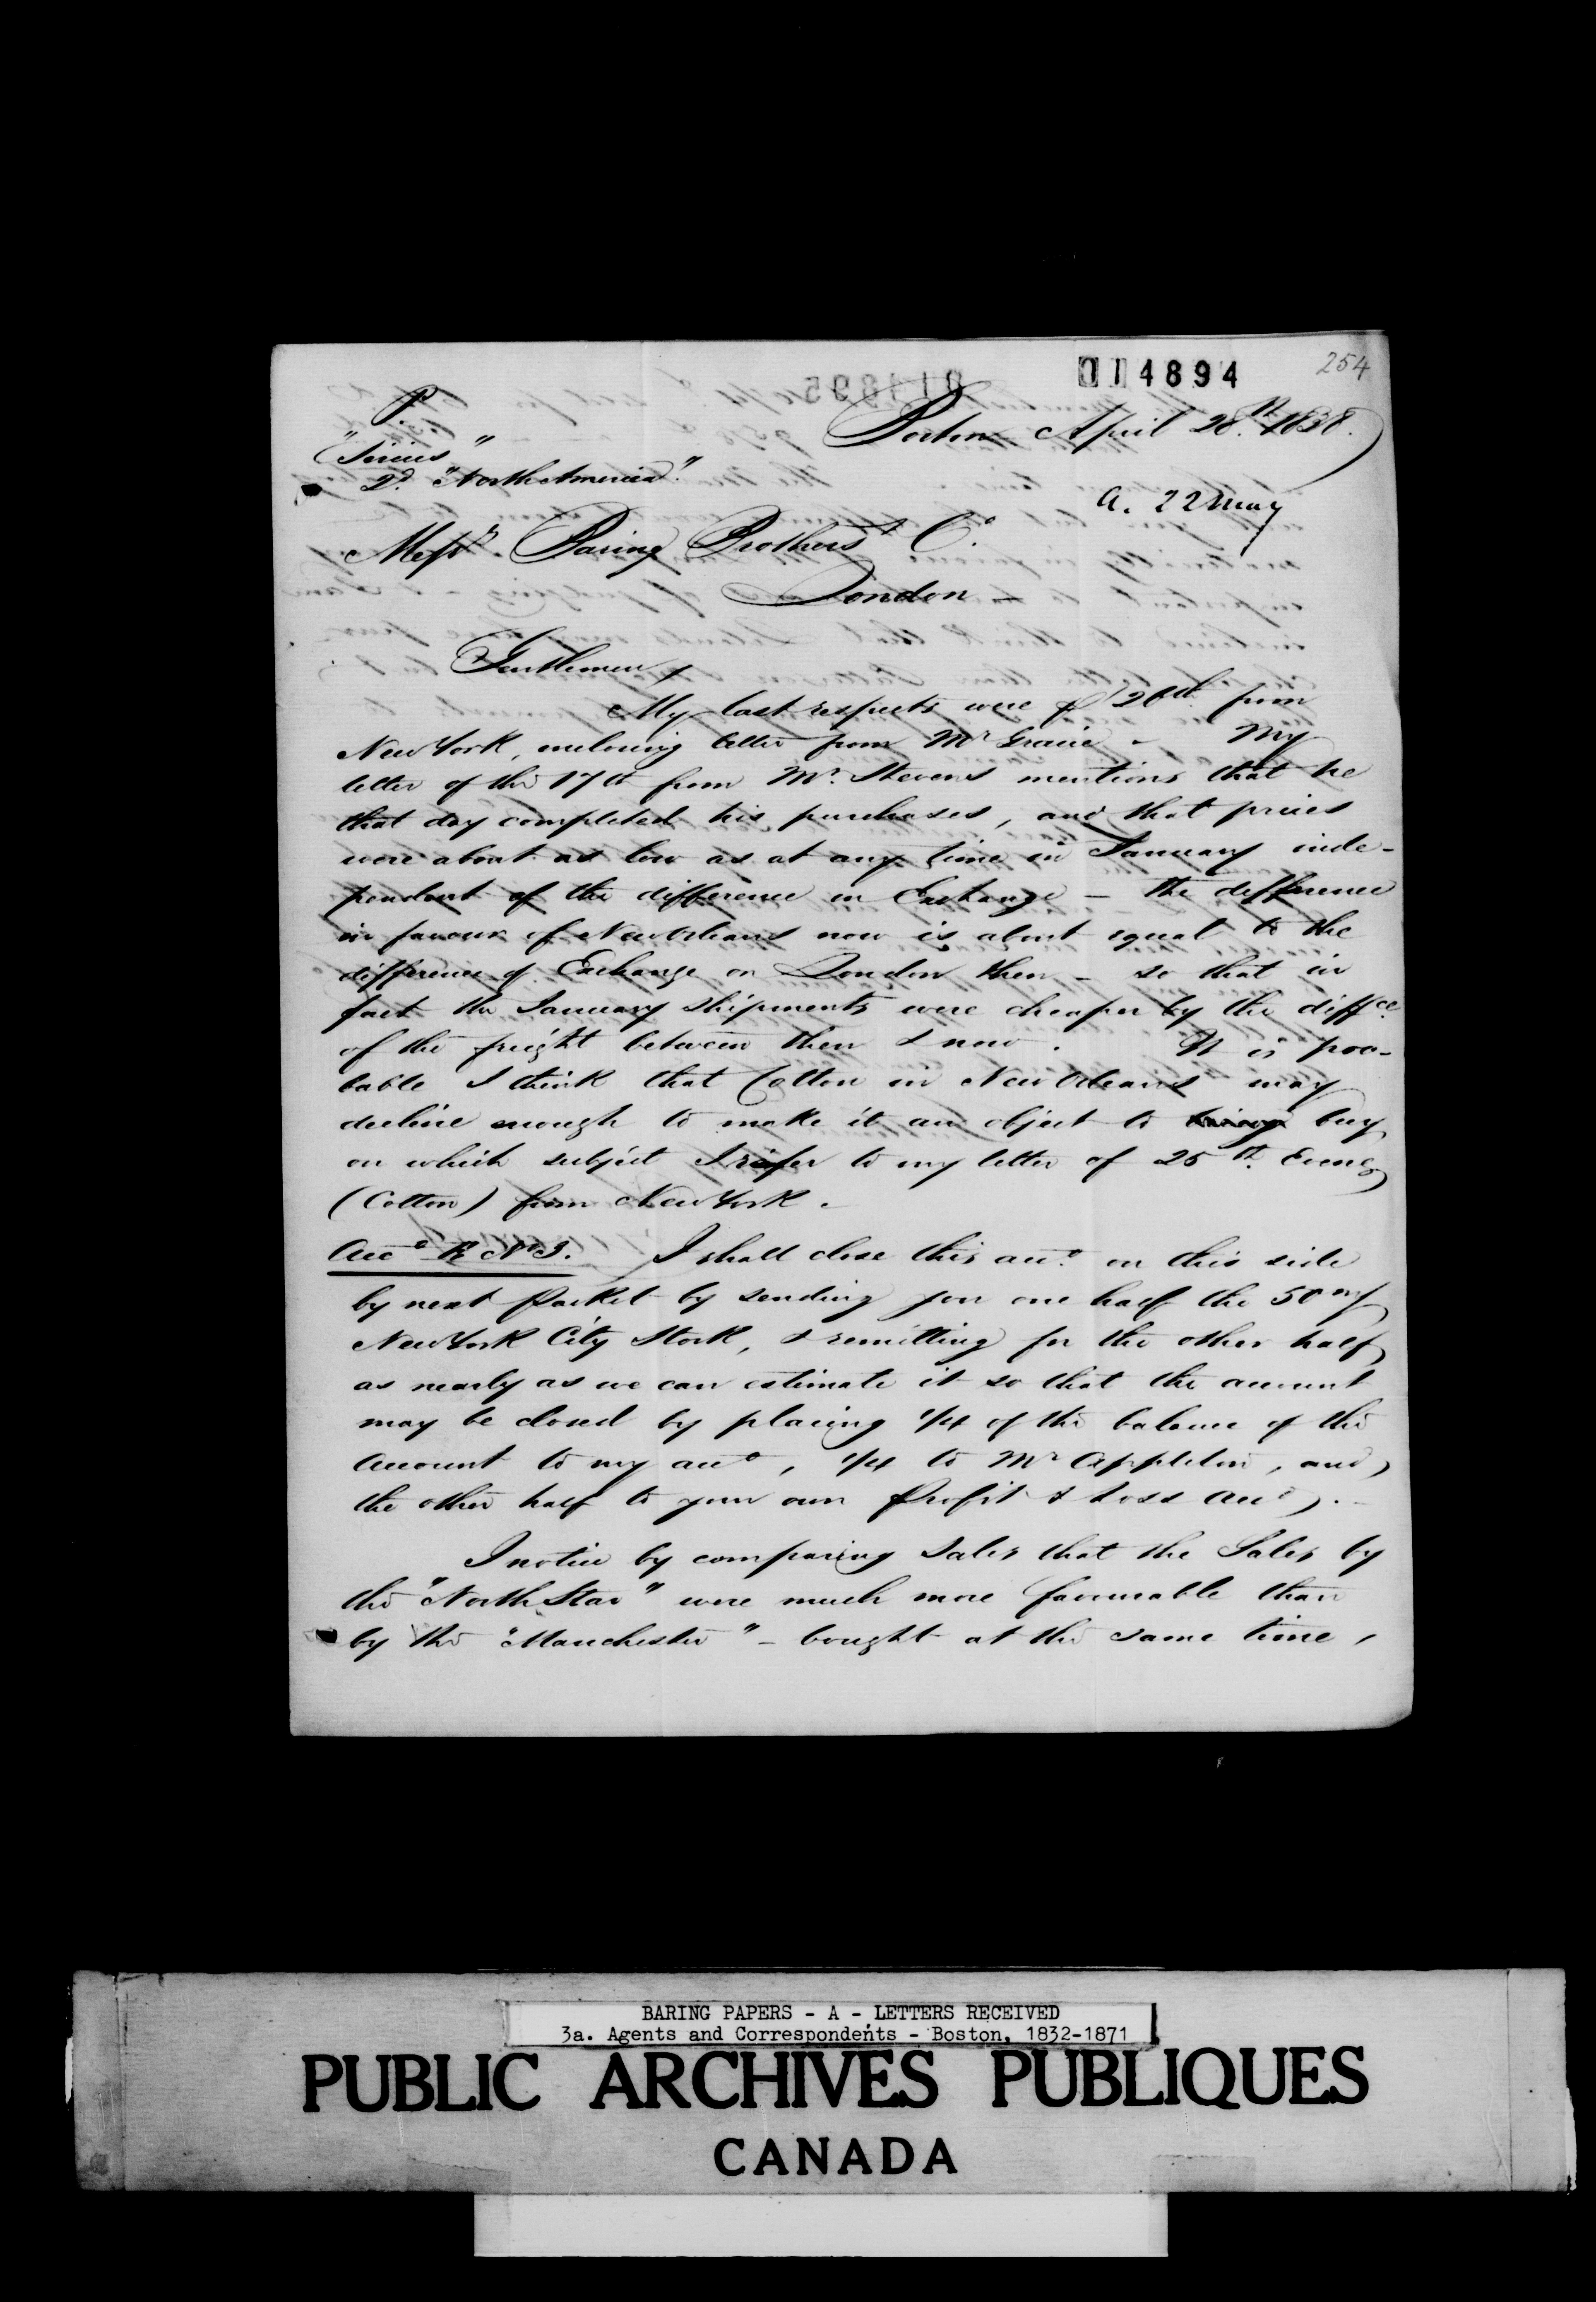 014894
254
P.
"Sirius"
2d. "North America".
Boston April 28th. 1838.
a. 22 May
Messrs. Baring Brothers & Co.
London
Gentlemen,
My last respects were pr 26th. from
New York, enclosing letter from Mr Gracie - My
letter of the 17th from Mr. Stevens mentions that he
that day completed his purchases, and that prices
were about as low as at any time in January inde-
pendent of the difference in Exchange - the difference
in favour of New Orleans now is about equal to the
difference of Exchange on London then - so that in
fact the January shipments were cheaper by the diffce.
of the freight between then & now. It is pro-
bable I think that Cotton in New Orleans may
decline enough to make it an object to buy
on which subject I refer to my letter of 25th. Eveng
(Cotton) from New York.
Acco R No 3. I shall close this acco. on this side
by next Packet by sending you one half the 50 m/
New York City Stock, & remitting for the other half,
as nearly as we can estimate it so that the amount
may be closed by placing 1/4 of the balance of the
Account to my acco, 1/4 to Mr Appleton, and
the other half to your own Profit & Loss acco.
I notice by comparing Sales that the Sales by
the "North Star" were much more favourable than
by the "Manchester" - bought at the same time,
BARING PAPERS - A - LETTERS RECEIVED
3a. Agents and Correspondents - Boston, 1832-1871
PUBLIC ARCHIVES PUBLIQUES
CANADA